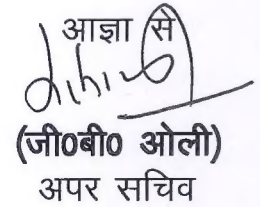 आज्ञा से
(जी०बी० ओली)
अपर सचिव